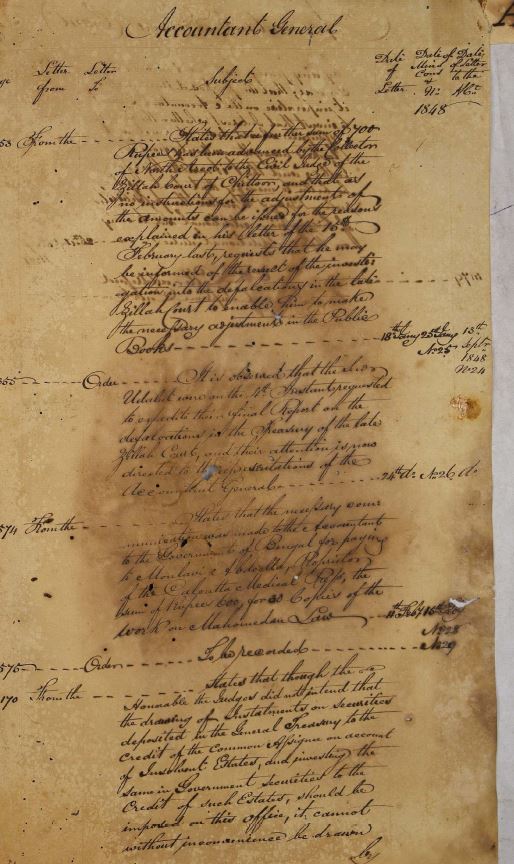 Accountant General
Letter from
Letter To
Subject
Date of Letter
Date of Mins of Cons & No.
Date of Letter to the
1848
53 From the States that the sum of 700
Rupees has been advanced by the Collector
of North Arcot to the Civil Judge of the
Zillah Court of Chittoor, and that as
no instructions for the adjustments of
the amounts can be issued for the reasons
explained in his letter of the 16th
February last, requests that he may
be informed of the result of the investi
gation into the defalcations in the late
Zillah Court to enable him to make
the necessary adjustments in the Public
Books 18th Jany 25th Jany 13th
No 25 Septr
1848
No 24
Order It is observed that the
were on the 4th Instant requested
to expedite their final Report on the
defalcations in the Treasury of the late
Zillah Court, and their attention is now
directed to the representations of the
Accountant General 24th do No 26 do
574 From the States that the necessary com
munication was made to the Accountant
to the Government of Bengal for paying
to Moulavi Abdoolla, Proprietor
of the Calcutta Medical Press, the
sum of Rupees for Copies of the
work on Mahomedan Law 11th Feby
No 28
575 Order To be recorded No 29
170 From the States that though the
Honorable the Judges did not intend that
the drawing of Instalments on securities
deposited in the General Treasury to the
credit of the Common Assignee on account
of Insolvent Estates, and investing the
same in Government securities to the
Credit of such Estates, should be
imposed on this office, it cannot
without inconvenience be drawn
by